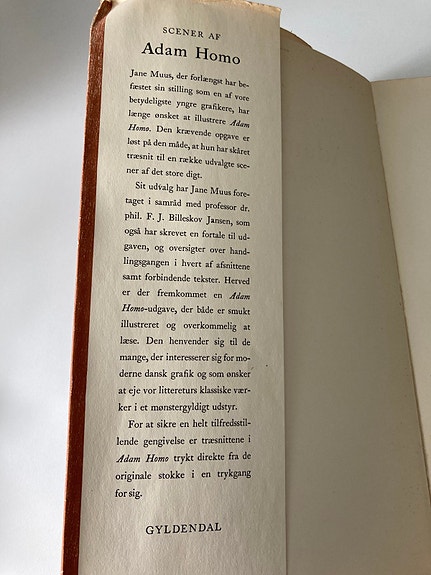 SCENER AF
Adam Homo
Jane Muus, der forlængst har be-
fæstet sin stilling som en af vore
betydeligste yngre grafikere, har
længe ønsket at illustrere Adam
Homo. Den krævende opgave er
løst på den måde, at hun har skåret
træsnit til en række udvalgte sce-
ner af det store digt.
Sit udvalg har Jane Muus fore-
taget i samråd med professor dr.
phil. F. J. Billeskov Jansen, som
også har skrevet en fortale til ud-
gaven, og oversigter over hand-
lingsgangen i hvert af afsnittene
samt forbindende tekster. Herved
er der fremkommet en Adam
Homo-udgave, der både er smukt
illustreret og overkommelig at
læse. Den henvender sig til de
mange, der interesserer sig for mo-
derne dansk grafik og som ønsker
at eje vor litteraturs klassiske vær-
ker i et mønstergyldigt udstyr.
For at sikre en helt tilfredsstil-
lende gengivelse er træsnittene i
Adam Homo trykt direkte fra de
originale stokke i en trykgang
for sig.
GYLDENDAL